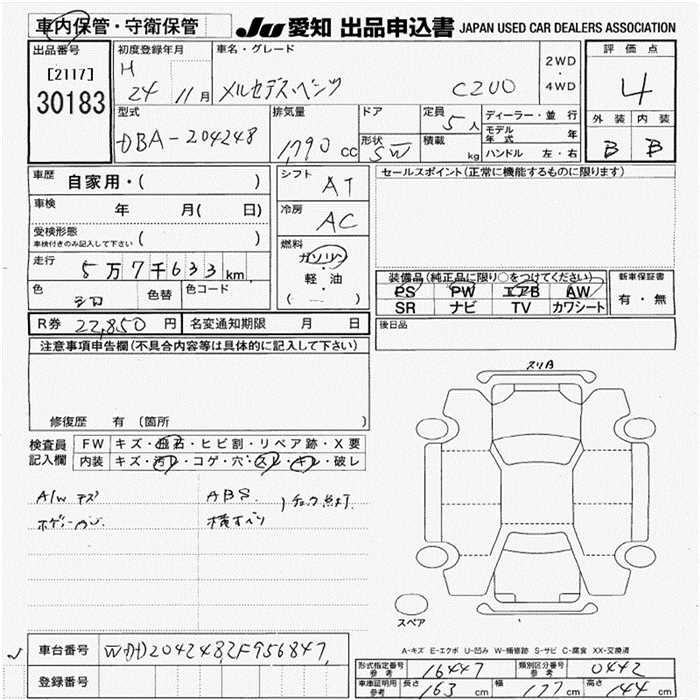 車内保管・守衛保管 JU 愛知 出品申込書 JAPAN USED CAR DEALERS ASSOCIATION
出品番号 初度登録年月 車名・グレード 2WD・4WD 評価点
[2117] H 24 11月 メルセデスベンツ C200 4
30183
型式 排気量 ドア 定員 ディーラー・並行 外装 内装
DBA-204248 1,790cc 5人 モデル年式 年 B B
形状 SW 積載 kg ハンドル 左・右
車歴 自家用・( ) シフト AT セールスポイント(正常に機能するものに限ります)
車検 年 月( 日) 冷房 AC
受検形態 車検付きのみ記入して下さい ( )
燃料 ガソリン・軽油 ( )
走行 5万7千633km
装備品(純正品に限り○をつけてください) 新車保証書
色 シロ 色替 色コード
PS PW エアB AW 有・無
SR ナビ TV カワシート
R券 22,850円 名変通知期限 月 日 後日品
注意事項申告欄(不具合内容等は具体的に記入して下さい)
スリB
修復歴 有(箇所 )
検査員記入欄 FW キズ・飛石・ヒビ割・リペア跡・X要
内装 キズ・汚れ・コゲ・穴・スレ・キレ・破レ
A/W キズ ABS.
スペア
A-キズ E-エクボ U-凹み W-補修跡 S-サビ C-腐食 XX-交換済
車台番号 WDD2042482F956847
形式指定番号 参考 16447 類別区分番号 参考 0442
登録番号
車庫証明用 参考 長さ 163cm 幅 177cm 高さ 144cm